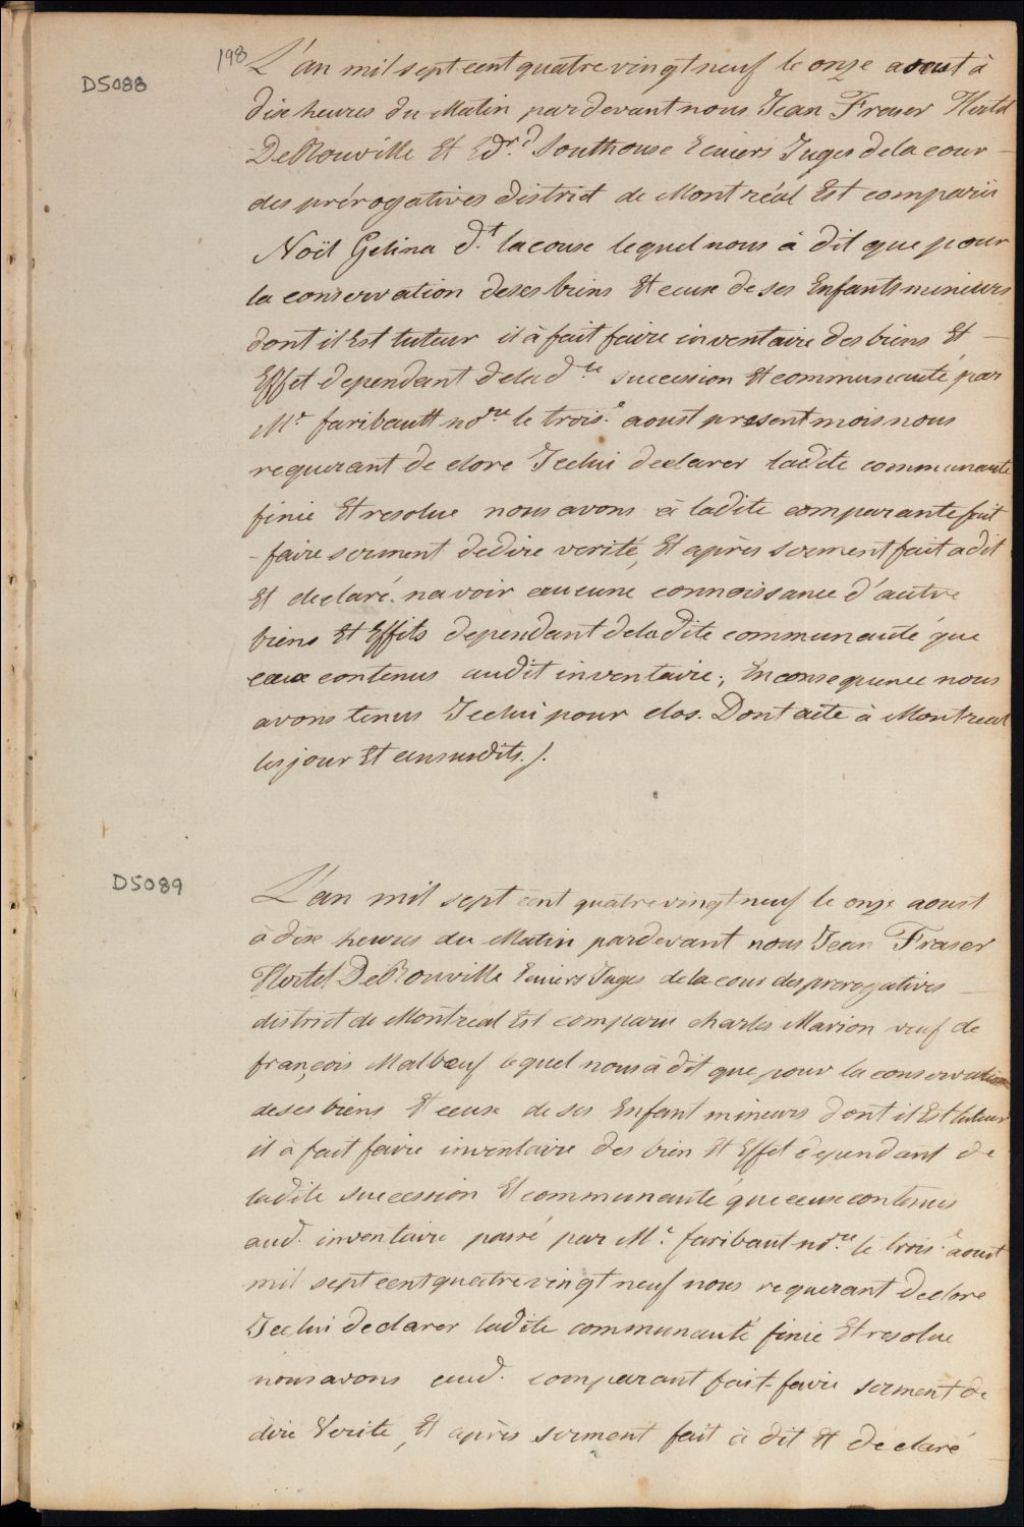 198
D5088
L'an mil sept cent quatre vingt neuf le onze aoust à
dixe heures du Matin pardevant nous Jean Fraser Hertel
DeRouville Et Edrd. Southouse Ecuiers Juges de la cour
des prérogatives district de Montréal Est comparü
Noël Gelina dt. lacouse lequel nous à dit que pour
la conservation de ses biens Et ceux de ses Enfants mineurs
dont il Est tuteur il à fait faire inventaire des biens Et
Effet dependant de la dte succession Et communauté, par
Mr. faribault nore le trois.e aoust present mois nous
requerant de clore Icelui declarer ladite communauté
finie Et resolue nous avons à ladite comparante fait
faire serment de dire verité, Et après serment fait a dit
Et declaré. navoir aucune connoissance d'autre
biens Et Effits dependant de ladite communauté que
ceux contenus audit inventaire; En consequence nous
avons tenus Icelui pour clos. Dont acte à Montreal
les jour Et an susdits./.
D5089
L'an mil sept cent quatre vingt neuf le onze aoust
à dixe heures du Matin pardevant nous Jean Fraser
Hertel DeRouville Ecuiers Juges de la cour des prerogatives
district de Montréal Est comparu charles Marion veuf de
françois Malbœuf lequel nous à dit que pour la conservation
de ses biens Et ceux de ses Enfant mineurs dont il Est tuteur
il à fait faire inventaire des bien Et Effet dependant de
ladite succession Et communauté que ceux contenus
aud. inventaire passé par Mr. faribaut nore. le trois.e aoust
mil sept cent quatre vingt neuf nous requerant declore
Icelui declarer ladite communauté finie Et resolue
nous avons aud. comparant fait-faire serment de
dire Verite, Et après serment fait à dit Et declaré